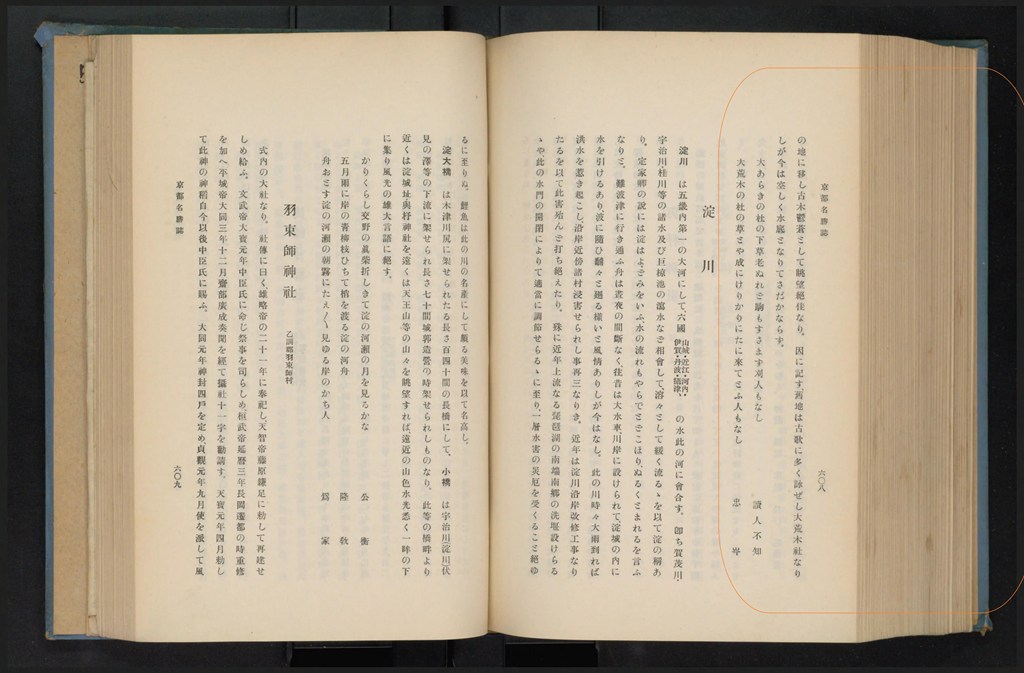 京都名勝誌
六〇八
の地に移し古木鬱蒼として眺望絶佳なり。因に記す、舊地は古歌に多く詠ぜし大荒木社なり
しが今は空しく水底となりてさだかならず。
大あらきの杜の下草老ぬれど駒もすさます刈人もなし　讀人不知
大荒木の杜の草とや成にけりかりにたに來てとふ人もなし　忠岑
淀川
淀川　は五畿內第一の大河にして、六國 山城・近江・河內・伊賀・丹波・攝津・ の水此の河に會合す。卽ち賀茂川・
宇治川桂川等の諸水及び巨椋池の瀉水など相會して、溶々として緩く流るゝを以て淀の稱あ
り。定家卿の說には淀はよどみをいふ水の流れもやらでとどこほり、ぬるくとまれるを言ふ
なりと。難波津に行き通ふ舟は晝夜の間斷なく往昔は大水車川岸に設けられて、淀城の內に
水を引けるあり波に隨ひ翻々と廻る樣いと風情ありしが今はなし。此の川時々大雨到れば
洪水を惹き起こし、沿岸近傍諸村浸害せられし事再三なりき。近年は淀川沿岸改修工事なり
たるを以て此害殆んど打ち絕えたり。殊に近年上流なる琵琶湖の南端南鄕の洗堰設けらる
ゝや此の水門の開閉によりて適當に調節せらるゝに至り、一層水害の災厄を受くること絕ゆ
るに至りぬ。鯉魚は此の川の名產にして頗る美味を以て名高し。
淀大橋　は木津川尻に架せられたる長さ百四十間の長橋にして、小橋　は宇治川(淀川)伏
見の澤等の下流に架せられ長さ七十間城郭造營の時架せられしものなり。此等の橋畔より
近くは淀城址與杼神社を遠くは天王山等の山々を眺望すれば、遠近の山色水光悉く一眸の下
に集り風光の雄大言語に絕す。
かりくらし交野の眞柴折しきて淀の河瀨の月を見るかな　公衡
五月雨に岸の靑柳枝ひちて梢を渡る淀の河舟　隆敎
舟おとす淀の河瀨の朝霧にたえ〴〵見ゆる岸のかち人　爲家
羽束師神社　乙訓郡羽束師村
式內の大社なり。社傳に曰く、雄略帝の二十一年に奉祀し、天智帝藤原鎌足に勅して再建せ
しめ給ふ。文武帝大寶元年中臣氏に命じ祭事を司らしめ、桓武帝延曆三年長岡遷都の時重修
を加へ平城帝大同三年十二月齋部廣成奏聞を經て攝社十一字を勸請す。天寶元年四月勅し
て此神の神稻自今以後中臣氏に賜ふ。大同元年神封四戶を定め、貞觀元年九月使を派して風
京都名勝誌
六〇九